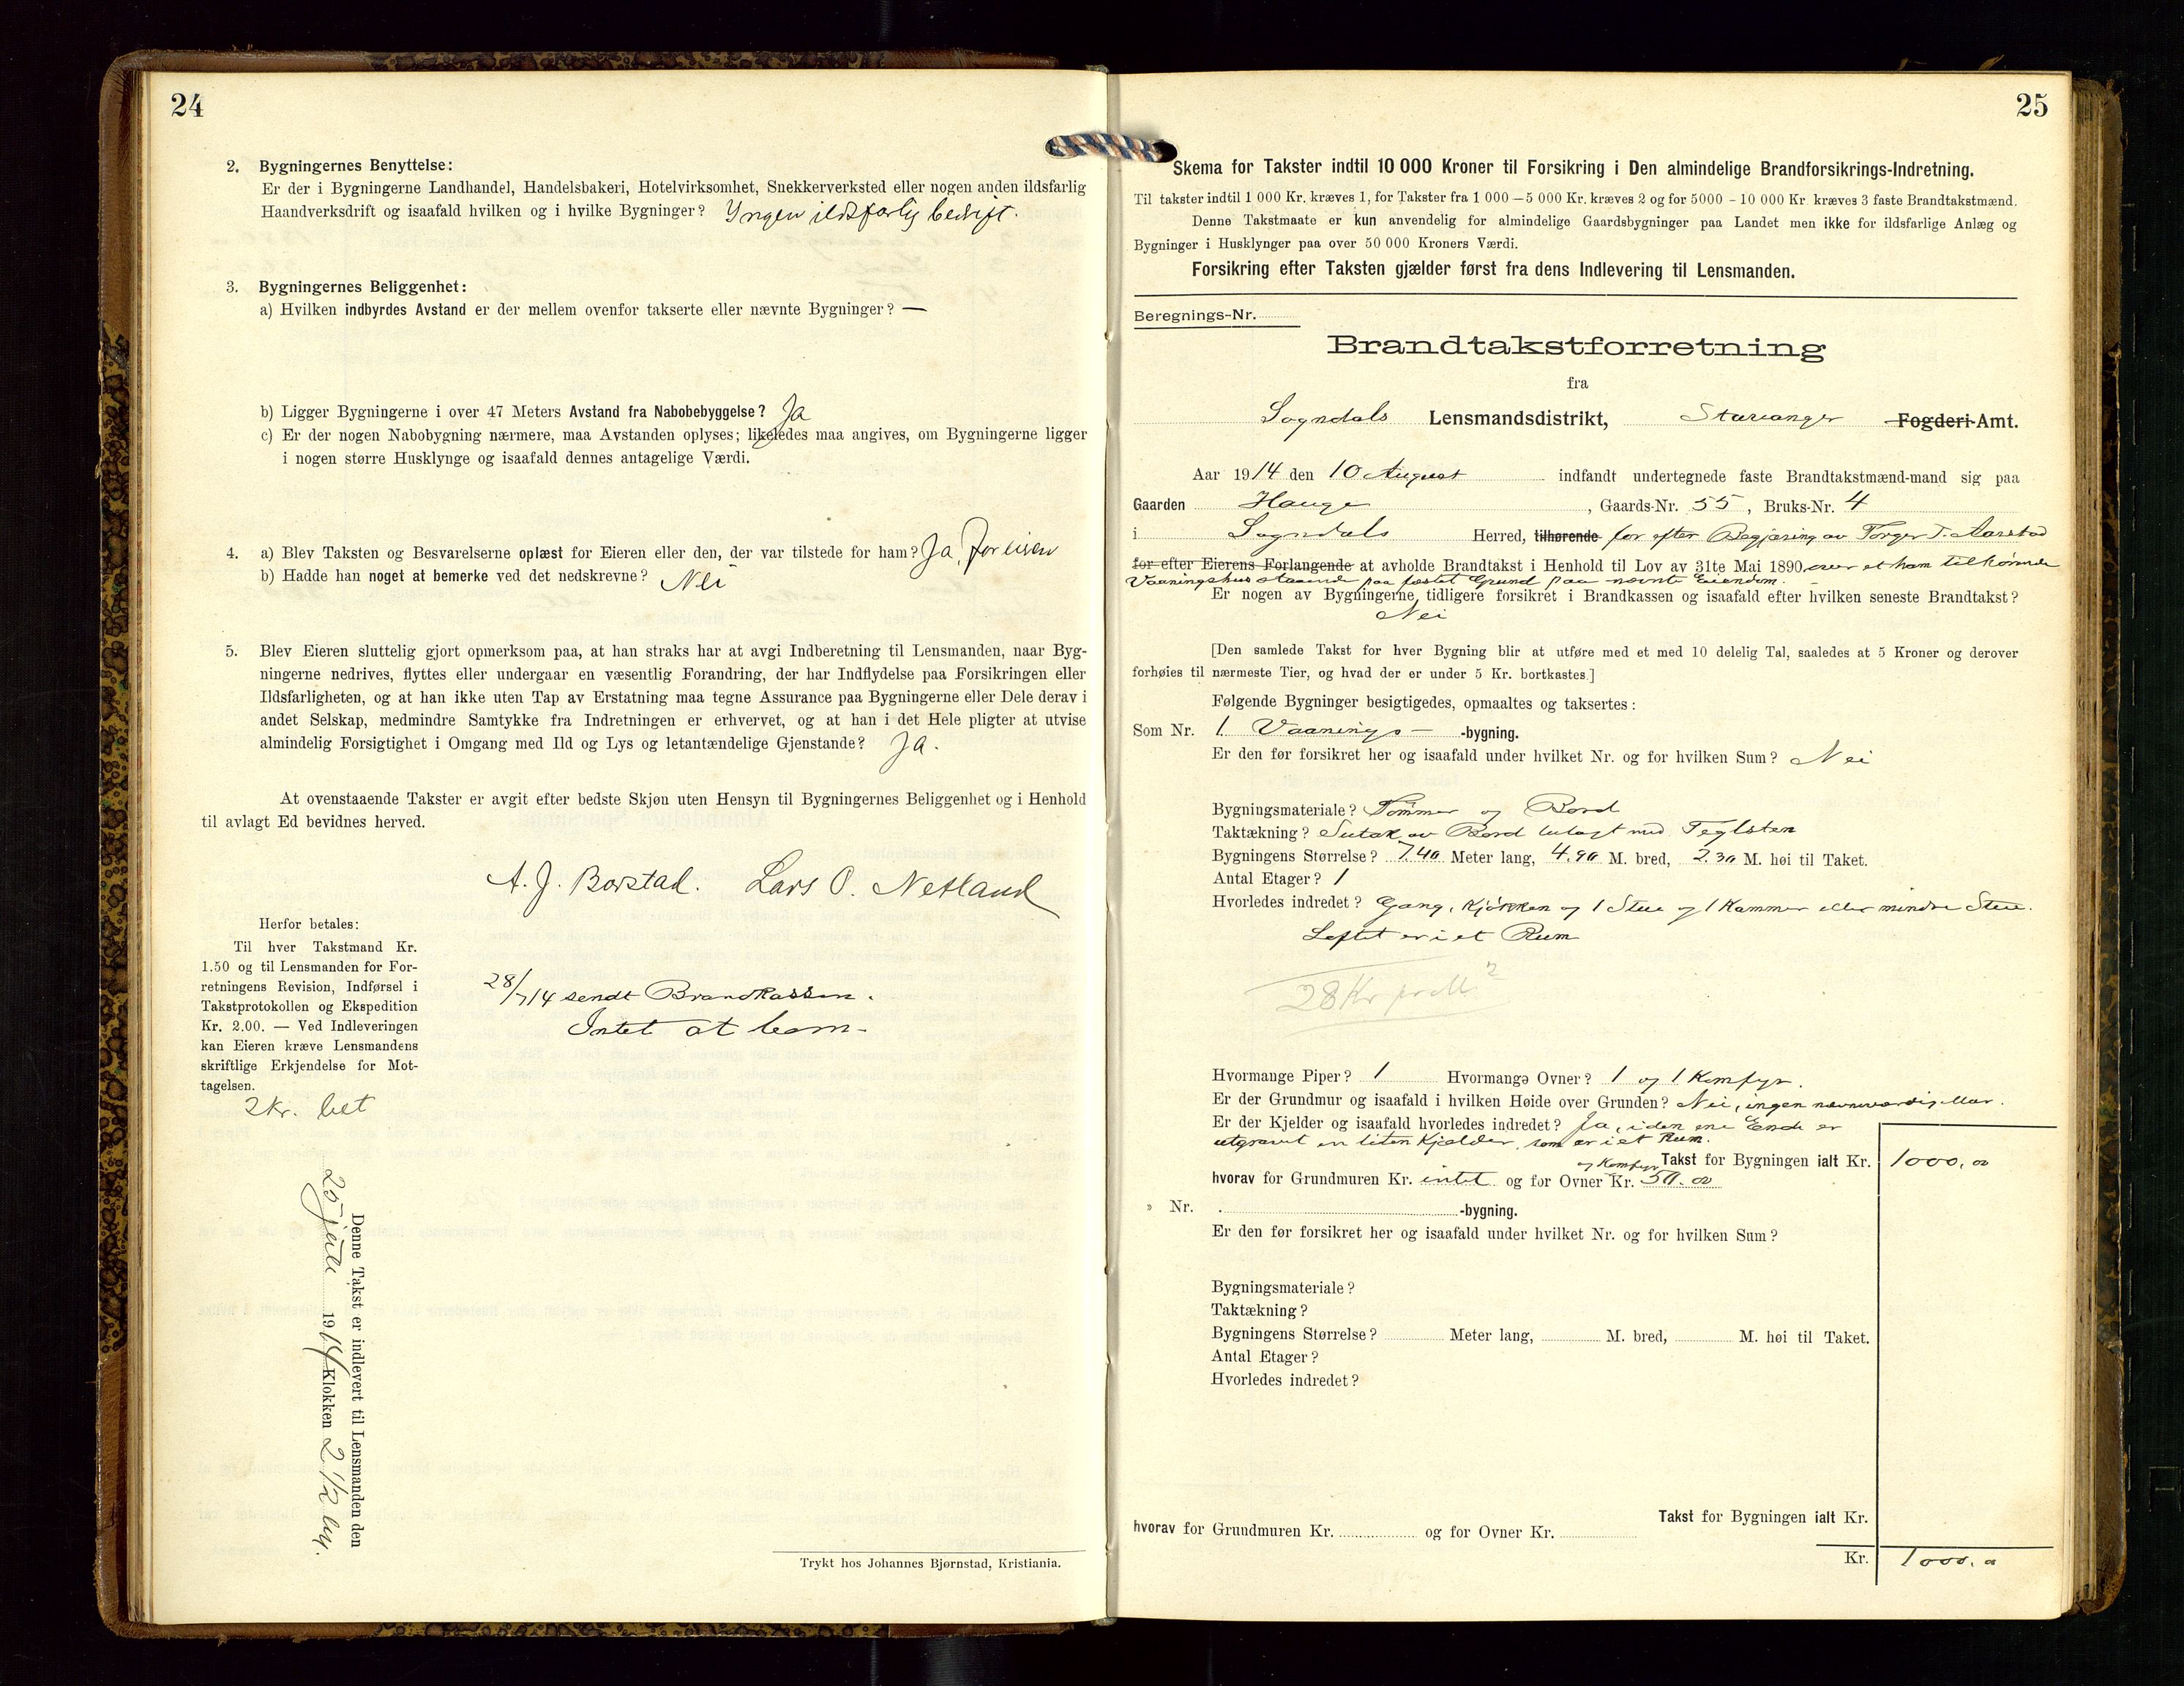 24
2. Bygningernes Benyttelse:
Er der i Bygningerne Landhandel, Handelsbakeri, Hotelvirksomhet, Snekkerverksted eller nogen anden ildsfarlig
Haandverksdrift og isaafald hvilken og i hvilke Bygninger? Yngen ildsfarlig bedrift.
3. Bygningernes Beliggenhet:
a) Hvilken indbyrdes Avstand er der mellem ovenfor takserte eller nævnte Bygninger? —
b) Ligger Bygningerne i over 47 Meters Avstand fra Nabobebyggelse? Ja
c) Er der nogen Nabobygning nærmere, maa Avstanden oplyses; likeledes maa angives, om Bygningerne ligger
i nogen større Husklynge og isaafald dennes antagelige Værdi.
4. a) Blev Taksten og Besvarelserne oplæst for Eieren eller den, der var tilstede for ham? Ja, for eieren
b) Hadde han noget at bemerke ved det nedskrevne? Nei
5. Blev Eieren sluttelig gjort opmerksom paa, at han straks har at avgi Indberetning til Lensmanden, naar Byg-
ningerne nedrives, flyttes eller undergaar en væsentlig Forandring, der har Indflydelse paa Forsikringen eller
Ildsfarligheten, og at han ikke uten Tap av Erstatning maa tegne Assurance paa Bygningerne eller Dele derav i
andet Selskap, medmindre Samtykke fra Indretningen er erhvervet, og at han i det Hele pligter at utvise
almindelig Forsigtighet i Omgang med Ild og Lys og letantændelige Gjenstande? Ja.
At ovenstaaende Takster er avgit efter bedste Skjøn uten Hensyn til Bygningernes Beliggenhet og i Henhold
til avlagt Ed bevidnes herved.
A. J. Barstad. Lars O. Netland
Herfor betales:
Til hver Takstmand Kr.
1.50 og til Lensmanden for For-
retningens Revision, Indførsel i
Takstprotokollen og Ekspedition
Kr. 2.00. — Ved Indleveringen
kan Eieren kræve Lensmandens
skriftlige Erkjendelse for Mot-
tagelsen.
2 kr. bet
28/7 14 sendt Brandkassen.
Intet at bem-
Denne Takst er indlevert til Lensmanden den
25 juli 1914 Klokken 2 1/2
Trykt hos Johannes Bjørnstad, Kristiania.
25
Skema for Takster indtil 10 000 Kroner til Forsikring i Den almindelige Brandforsikrings-Indretning.
Til takster indtil 1 000 Kr. kræves 1, for Takster fra 1 000 — 5 000 Kr. kræves 2 og for 5000 - 10 000 Kr. kræves 3 faste Brandtakstmænd.
Denne Takstmaate er kun anvendelig for almindelige Gaardsbygninger paa Landet men ikke for ildsfarlige Anlæg og
Bygninger i Husklynger paa over 50 000 Kroners Værdi.
Forsikring efter Taksten gjælder først fra dens Indlevering til Lensmanden.
Beregnings-Nr.
Brandtakstforretning
fra
Sogndals Lensmandsdistrikt, Stavanger Fogderi-Amt.
Aar 1914 den 10 August indfandt undertegnede faste Brandtakstmænd-mand sig paa
Gaarden Hauge, Gaards-Nr. 55, Bruks-Nr. 4
i Sogndals Herred, tilhørende for efter Begjæring av Torger T. Aarstad
for efter Eierens Forlangende at avholde Brandtakst i Henhold til Lov av 31te Mai 1890 over et ham tilhørende
Vaaningshus staaende paa fæstet Grund paa nævnte Eiendom.
Er nogen av Bygningerne tidligere forsikret i Brandkassen og isaafald efter hvilken seneste Brandtakst?
Nei
[Den samlede Takst for hver Bygning blir at utføre med et med 10 delelig Tal, saaledes at 5 Kroner og derover
forhøies til nærmeste Tier, og hvad der er under 5 Kr. bortkastes.]
Følgende Bygninger besigtigedes, opmaaltes og taksertes:
Som Nr. 1 Vaanings- -bygning.
Er den før forsikret her og isaafald under hvilket Nr. og for hvilken Sum? Nei
Bygningsmateriale? Tømmer og Bord
Taktækning? Sutak av Bord belagt med Teglsten
Bygningens Størrelse? 7.40 Meter lang, 4.90 M. bred, 2.30 M. høi til Taket.
Antal Etager? 1
Hvorledes indredet? Gang, Kjøkken og 1 Stue og 1 Kammer eller mindre Stue.
Loftet er i et Rum
28 Kr pr M²
Hvormange Piper? 1 Hvormange Ovner? 1 og 1 Komfyr.
Er der Grundmur og isaafald i hvilken Høide over Grunden? Nei, ingen nævneværdig Mur.
Er der Kjelder og isaafald hvorledes indredet? Ja, i den ene Ende er
utgravet en liten Kjælder, som er i et Rum.
Takst for Bygningen ialt Kr. 1000,00
hvorav for Grundmuren Kr. intet og for Ovner og Komfyr Kr. 50.00
» Nr. -bygning.
Er den før forsikret her og isaafald under hvilket Nr. og for hvilken Sum?
Bygningsmateriale?
Taktækning?
Bygningens Størrelse? Meter lang, M. bred, M. høi til Taket.
Antal Etager?
Hvorledes indredet?
Takst for Bygningen ialt Kr.
hvorav for Grundmuren Kr. og for Ovner Kr.
Kr. 1000,00